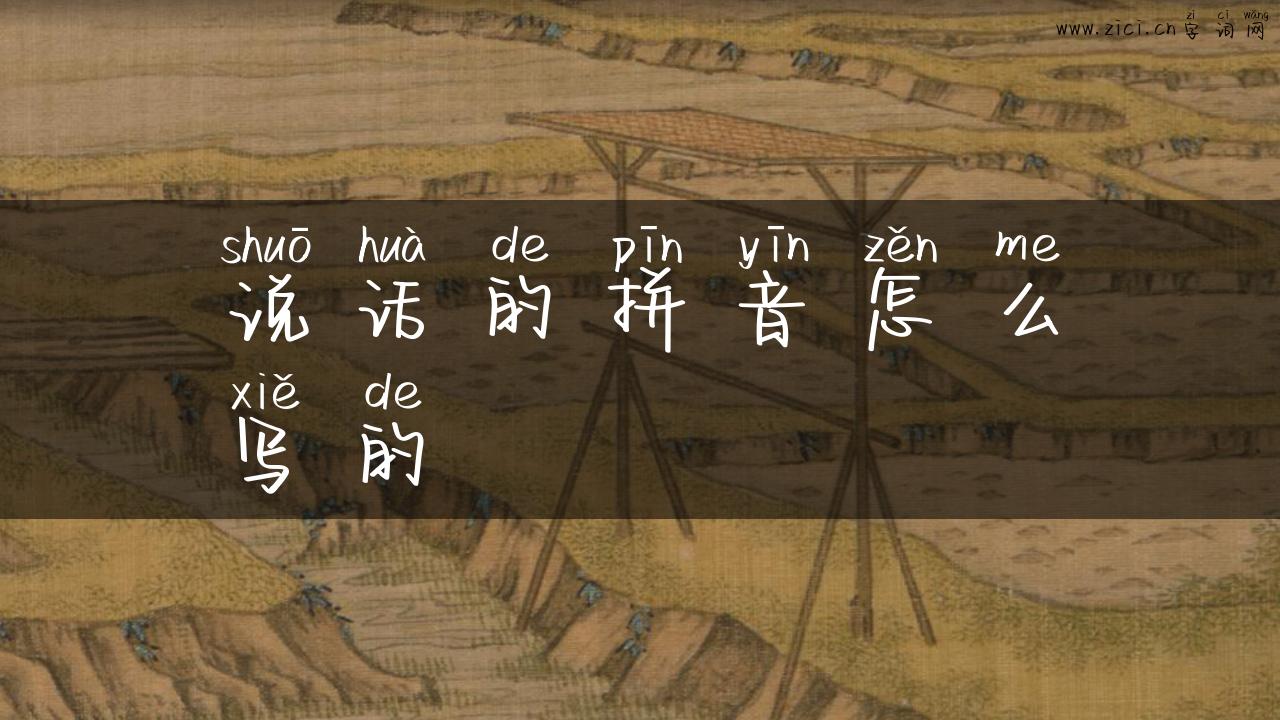 zì cí wǎng
www.zici.cn 字 词 网
shuō huà de pīn yīn zěn me
说 话 的 拼 音 怎 么
xiě de
写 的